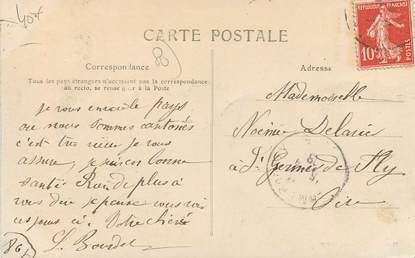 40f
80
CARTE POSTALE
Correspondance
Tous les pays étrangers n'acceptent pas la correspondance
au recto, se renseigner à la Poste
Adresse
REPUBLIQUE FRANÇAISE
10
POSTES
je vous envoie le pays
ou nous sommes cantonés
c'est très bien je vous
assure, je suis en bonne
santé Rien de plus à
vous dire je pense vous voir
L. Bourdel
86
Mademoiselle
Noémie Delarue
à St Germer de Fly
Oise